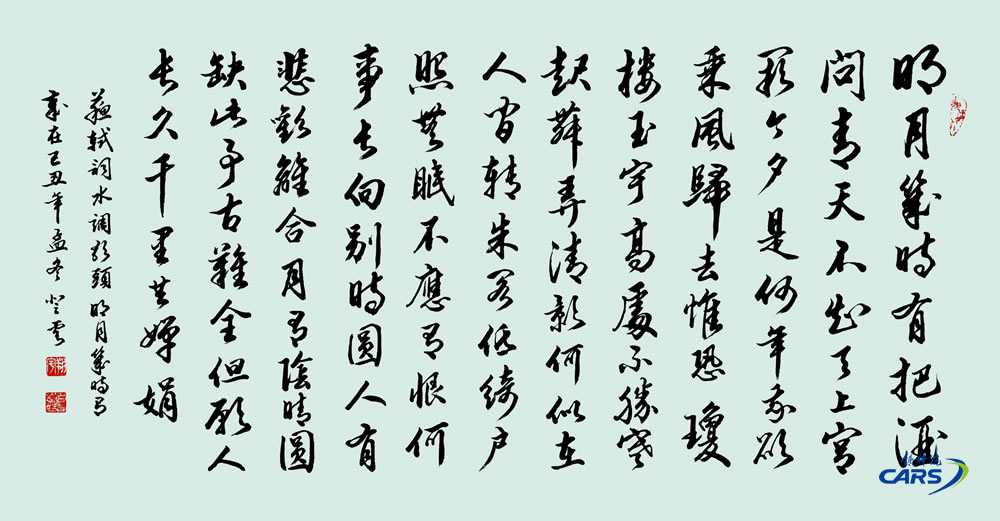 明月幾時有把酒
問青天不知天上宮
闕今夕是何年我欲
乘風歸去惟恐瓊
樓玉宇高處不勝寒
起舞弄清影何似在
人間轉朱閣低綺戶
照無眠不應有恨何
事長向別時圓人有
悲歡離合月有陰晴圓
缺此事古難全但願人
長久千里共嬋娟
蘇軾詞水調歌頭明月幾時有
歲在己丑年孟冬
CARS